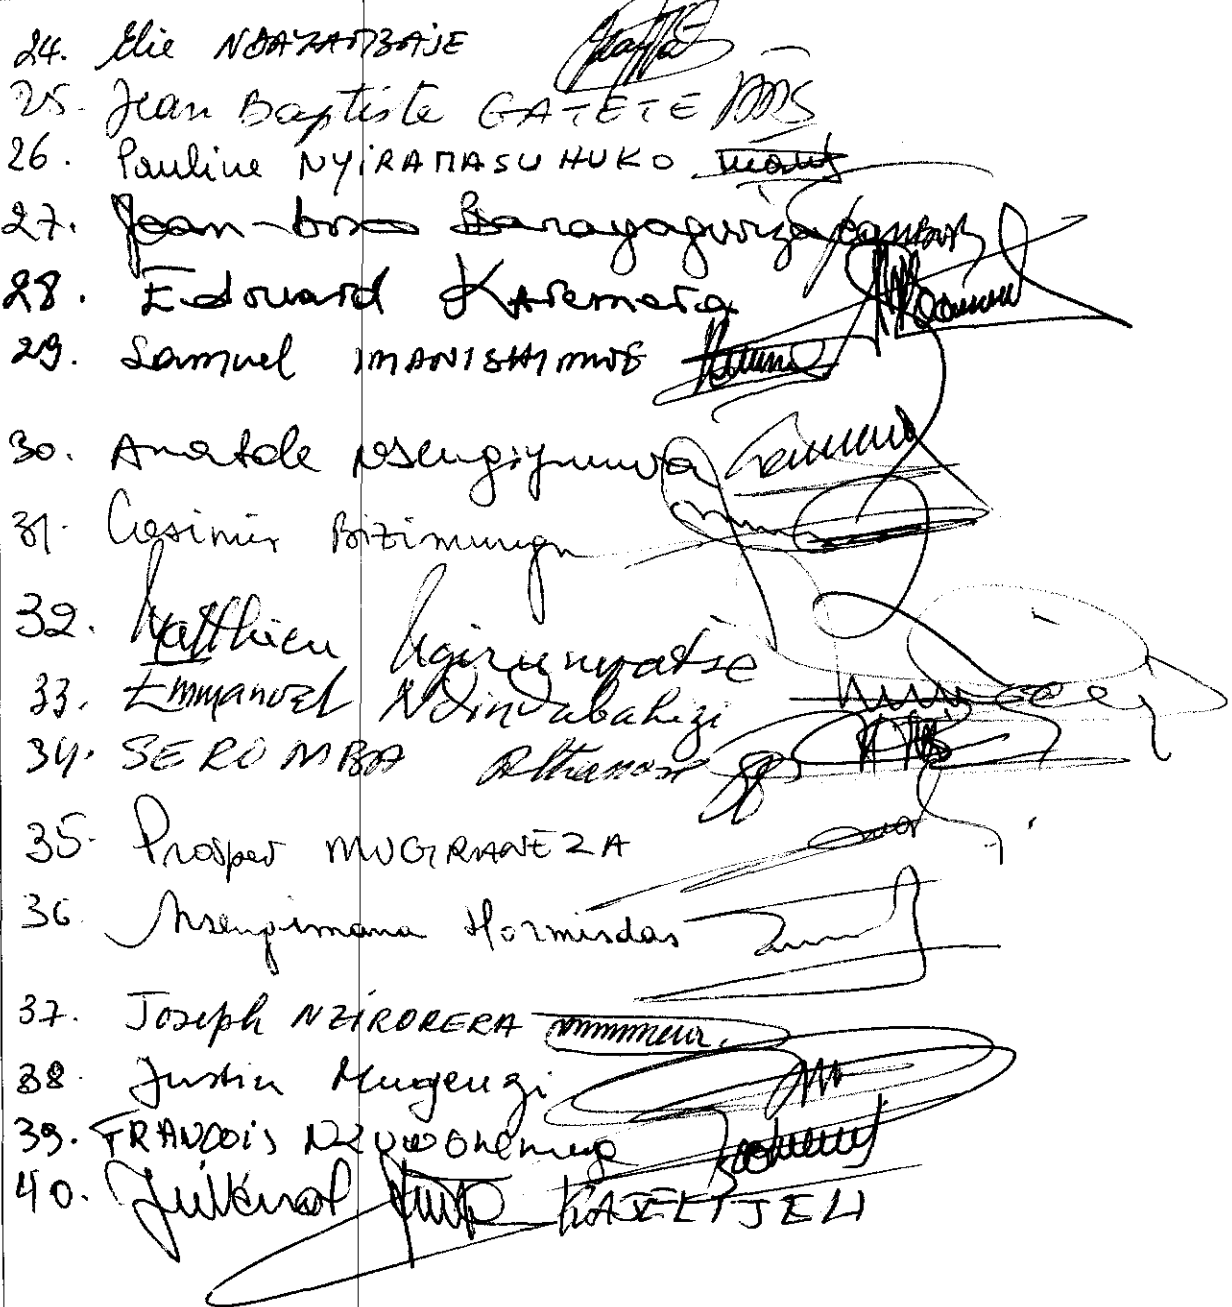 24. Elie NDAYAMBAJE
25. Jean Baptiste GATETE
26. Pauline NYIRAMASUHUKO
27. Jean-bosco Barayagwiza
28. Edouard Karemera
29. Samuel IMANISHIMWE
30. Anatole Nsengiyumva
31. Casimir Bizimungu
32. Matthieu Ngirumpatse
33. Emmanuel Ndindabahizi
34. SEROMBA Athanase
35. Prosper MUGIRANEZA
36. Nsengimana Hormisdas
37. Joseph NZIRORERA
38. Justin Mugenzi
39. FRANCOIS Nzuwonemeye
40. Juvénal KAJELIJELI